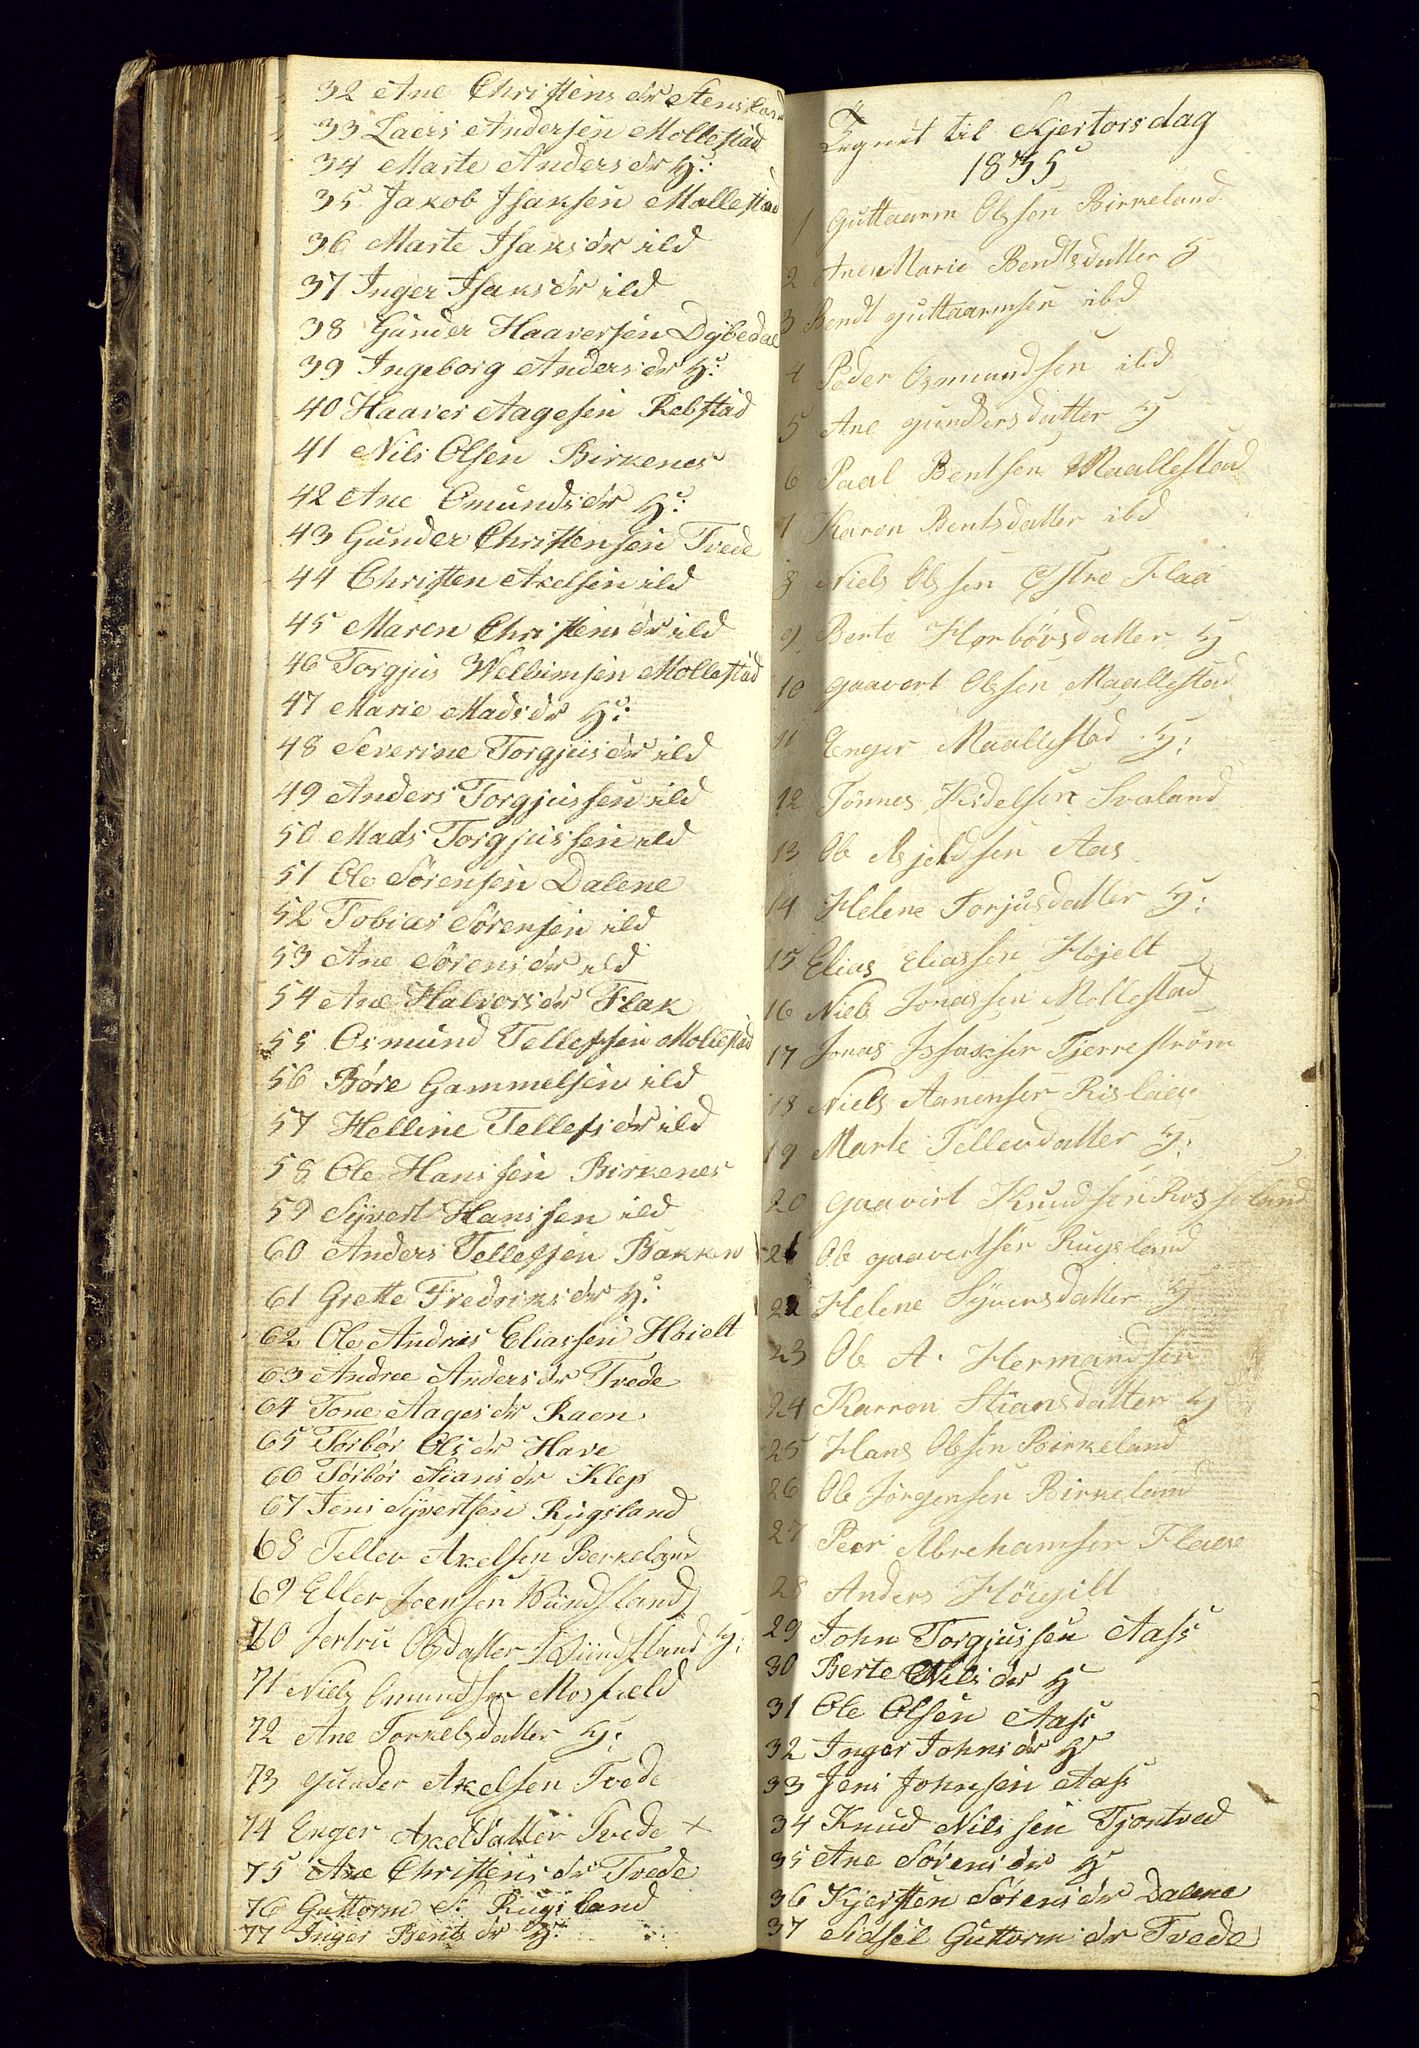 32 Ane Christens dr Stensland
33 Laers Andersen Mollestad
34 Marte Anders dr H:
35 Jakob Isaksen Mollestad
36 Marte Isaks dr ild
37 Inger Isaks dr ild
38 Gunder Haaversen Dybedal
39 Ingeborg Anders dr H:
40 Haaver Aagesen Rebstad
41 Nils Olsen Birkenes
42 Ane Omunds dr H:
43 Gunder Christensen Tvede
44 Christen Axelsen ild
45 Maren Christens dr ild
46 Torgjus Wellumsen Mollestad
47 Marie Mads dr H:
48 Severine Torgjus dr ild
49 Anders Torgjussen ild
50 Mads Torgjussen ild
51 Ole Sörensen Dalene
52 Tobias Sörensen ild
53 Ane Sörens dr ild
54 Ane Halvors dr Flak
55 Osmund Tellefsen Mollestad
56 Böre Gammelsen ild
57 Helline Tellefs dr ild
58 Ole Hanssen Birkenes
59 Syvert Hanssen ild
60 Anders Tellefsen Bakken
61 Grette Fredriks dr H:
62 Ole Andreas Eliassen Höielt
63 Andree Anders dr Tvede
64 Tone Aages dr Raen
65 Törbör Ols dr Have
66 Törbör Stians dr Klep
67 Jens Syvertsen Rugsland
68 Tellev Axelsen Berkeland
69 Eller Joensen
70 Jertru Olsdatter H:
71 Niels Omundsen Mosfield
72 Ane Torkelsdatter H:
73 gunder Axelsen Tvede
74 Enger Axelsdatter Tvede x
75 Ane Christens dr Tvede
76 Guttorm S: Rugsland
77 Inger Bents dr H:
Tegnet til Skjertorsdag
1835
1 Guttaarm Olssen Birkeland
2 Ane Marie Bendtsdatter H
3 Bendt guttaarmsen ibd
4 Peder Osmundsen ibd
5 Ane gundersdatter H
6 Paal Bentsen Maallestad
7 Karen Bentsdatter ibd
8 Niels Olssen Östre Flaa
9 Berte Horbörsdatter H
10 gaavert Olssen Maallestad
11 Enger Maallestad H:
12 Tönnes Kidelsen Svaland
13 Ole Asjeldsen Aas
14 Helene Torjusdatter H:
15 Elias Eliassen Höjelt
16 Niels Jonassen Mollestad
17 Jonas Issaksen Tjerreström
18 Niels Aanensen Rislaen
19 Marte Tellevdatter H:
20 gaavert Knudsen Rosseland
21 Ole gaavertsen Rugsland
22 Helene Syversdatter H
23 Ole A. Hermansen
24 Karren Stiansdatter H
25 Hans Olssen Birkeland
26 Ole Jörgensen Birkeland
27 Peer Abrehamsen Flaae
28 Anders Höigilt
29 John Torgjussen Aass
30 Berte Nils dr H
31 Ole Olsen Aass
32 Inger Johns dr H
33 Jens Johnsen Aass
34 Knud Nilssen Tjontved
35 Ane Sörens dr H
36 Kjersten Sörens dr Dalene
37 Sidsel Guttorms dr Tvede